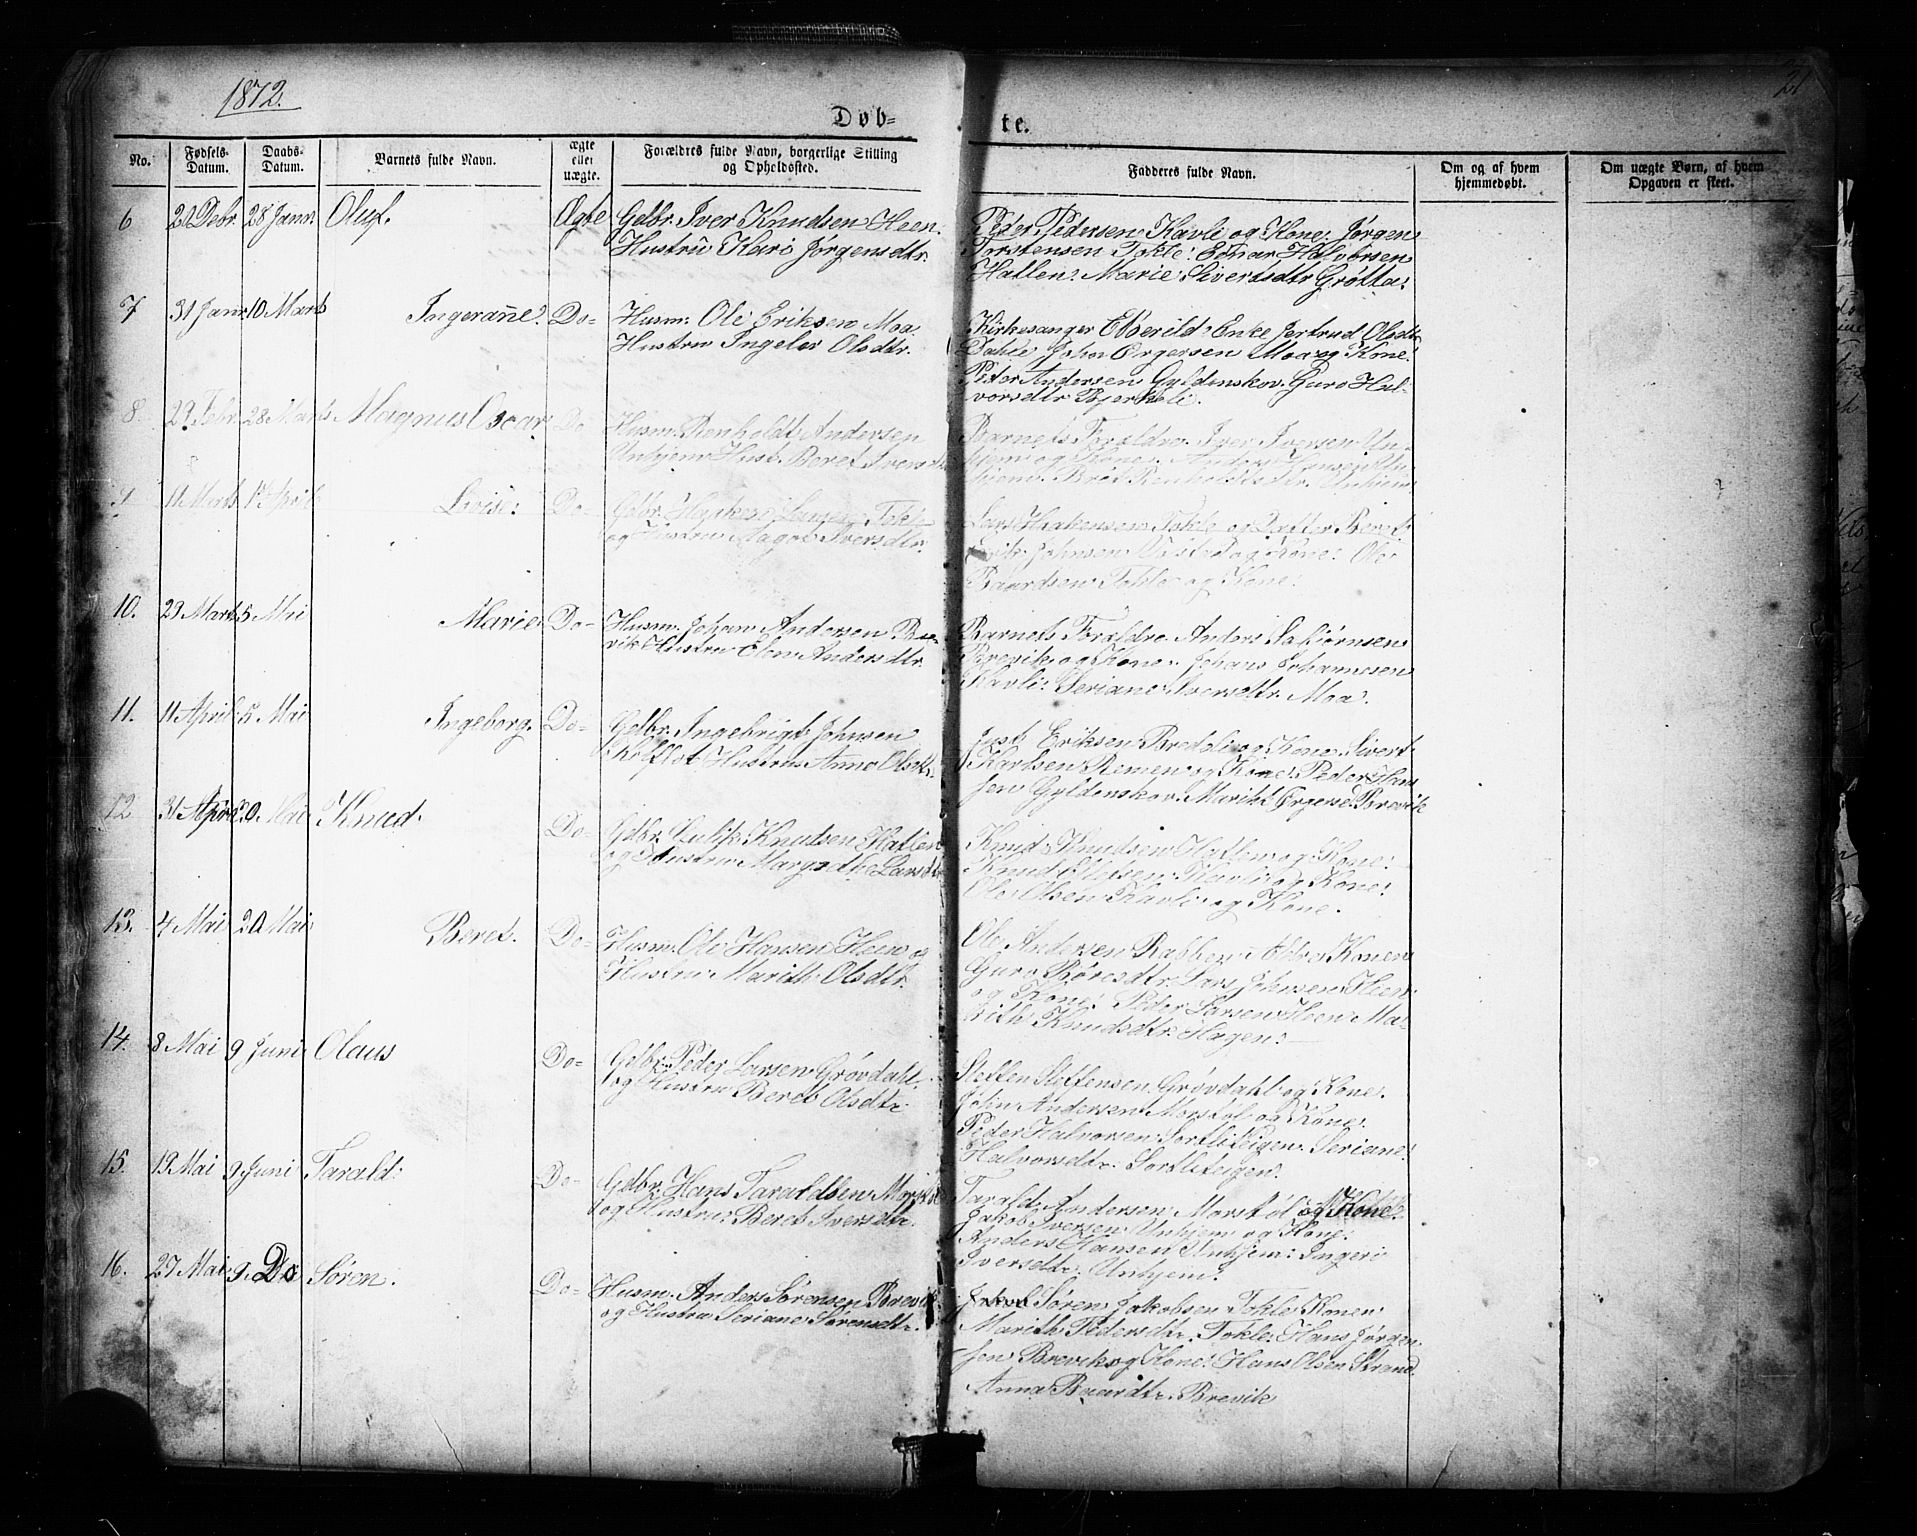 1872.
21
Døb-
te.
No.
Fødsels-Datum.
Daabs-Datum.
Barnets fulde Navn.
ægte eller uægte.
Forældres fulde Navn, borgerlige Stilling og Opholdssted.
Fadderes fulde Navn.
Om og af hvem hjemmedøbt.
Om uægte Børn, af hvem Opgaven er skeet.
6 28 Janr. Oluf. Ægte Gdbr. Iver Knudsen Heen.
Hustru Kari Jørgensdtr.
Peder Pedersen Kavli og Kone. Jørgen
Torstensen Tokle: Einar Halvorsen
Hatlen: Marie Sivertsdtr Grøtta:
7 31 Janr 10 Marts Ingerane. Do- Husm. Ole Eriksen Moa
Hustru Ingebor Olsdtr.
Kirkesanger Enke Jertrud Olsdtr
John Ergersen Moa og Kone:
Peder Andersen Gyldenskov. Guro Hal-
vorsdtr Bjerkeli.
8. 29 Febr. 28 Marts Magnus Oscar Do Husm. Renholdt Andersen
Unhjem Hust. Beret Iversdtr
Barnets Foraldre. Iver Iversen Un-
hjem og Kone. Anders Hansen Un-
hjem. Renholdtsdtr. Unhjem.
9. 11 Marts April Lovise: Do- Gdbr. Tokle
og Hustru Magot Iversdtr.
Lars Haakensen Tokle og Datter Beret
Erik Johnsen og Kone: Ole
Baardsen Tokle og Kone:
10. 29 Marts 5 Mai Marie. Do- Husm. Johan Andersen Bre-
vik Hustru Elen Andersdtr.
Barnets Foraldre. Anders
Brevik og Kone. Johans Johannesen
Kavli: Seriane Iversdtr. Moa.
11. 11 April. 5 Mai Ingeborg. Do- Gdbr. Ingebrigt Johnsen
Hustru Anne Olsdtr.
Just Eriksen Breddeli og Kone. Sivert
Karlsen Remem og Kone: Peder Han
sen Gyldenskov. Marith Brevik
12 Mai Knud. Do- Gdbr. Knutsen Hatlen
og Hustru Margrethe Larsdtr
Knud Knudsen Hatlem og Kone:
Knud Kavli og Kone:
Ole Olsen Kavli og Kone.
13. 4 Mai 20 Mai Beret. Do- Husm. Ole Hansen Heen og
Hustru Marith Olsdtr.
Ole Andersen Rabben Konen
Guro Lars Johnsen Heen
og Kone: Peder Larsen Heen Ma-
rith Knudsdtr. Hagen:
14. 8 Mai 9 Juni Olaus Do- Gdbr. Peder Larsen Grøvdahl.
og Hustru Beret Olsdtr.
Steffen Steffensen Grøvdahl og Kone.
John Andersen Morstøl og Kone:
Peder Halvorsen Sortliteigen. Seriane:
Halvorsdtr. Sortliteigen.
15. 19 Mai 9 Juni Tarald: Do- Gdbr. Hans Taraldsen
og Hustru: Beret Iversdtr.
Tarald Andersen Morstøl og Kone.
Jakob Iversen Unhjem og Kone:
Anders Hansen Unhjem: Ingeri
Iversdtr. Unhjem.
16. 27 Mai 9. Do Søren. Do- Husm. Anders Sørensen Brevik
og Hustru Seriane Sørensdtr.
Søren Jakobsen Tokle Konen
Marith Pedersdtr. Tokle: Hans Jørgen-
sen Brevik og Kone: Hans Olsen Strand
Anna Baardtr. Brevik